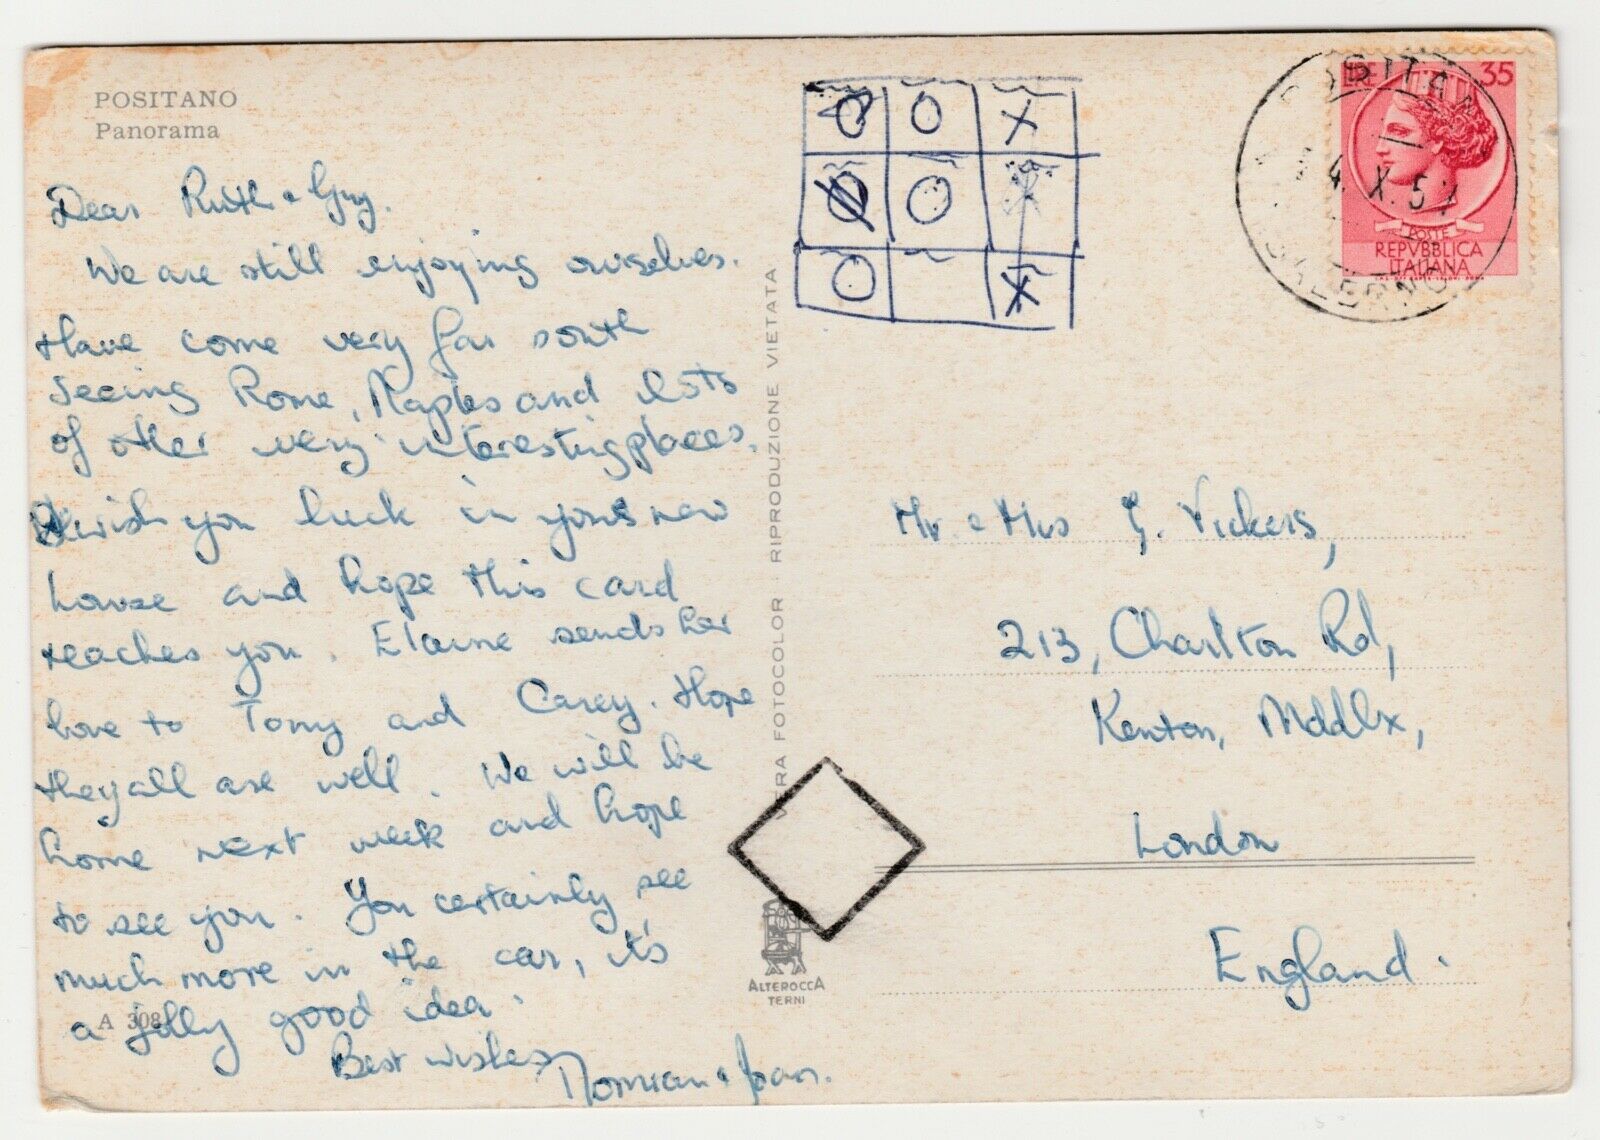 POSITANO
Panorama
Dear Ruth & Guy.
We are still enjoying ourselves.
Have come very far south
seeing Rome, Naples and lots
of other very interesting places.
wish you luck in your new
house and hope this card
reaches you. Elaine sends her
love to Tony and Carey. Hope
they all are well. We will be
home next week and hope
to see you. You certainly see
much more in the car, it's
a jolly good idea.
Best wishes
& Joan.
A 308
O O X
O O X
O X
VERA FOTOCOLOR - RIPRODUZIONE VIETATA
ALTEROCCA
TERNI
35
POSTE
REPVBBLICA
ITALIANA
POSITANO
4. X. 5
SALERNO
Mr & Mrs G. Vickers,
213, Charlton Rd,
Kenton, Mddlx,
London
England.